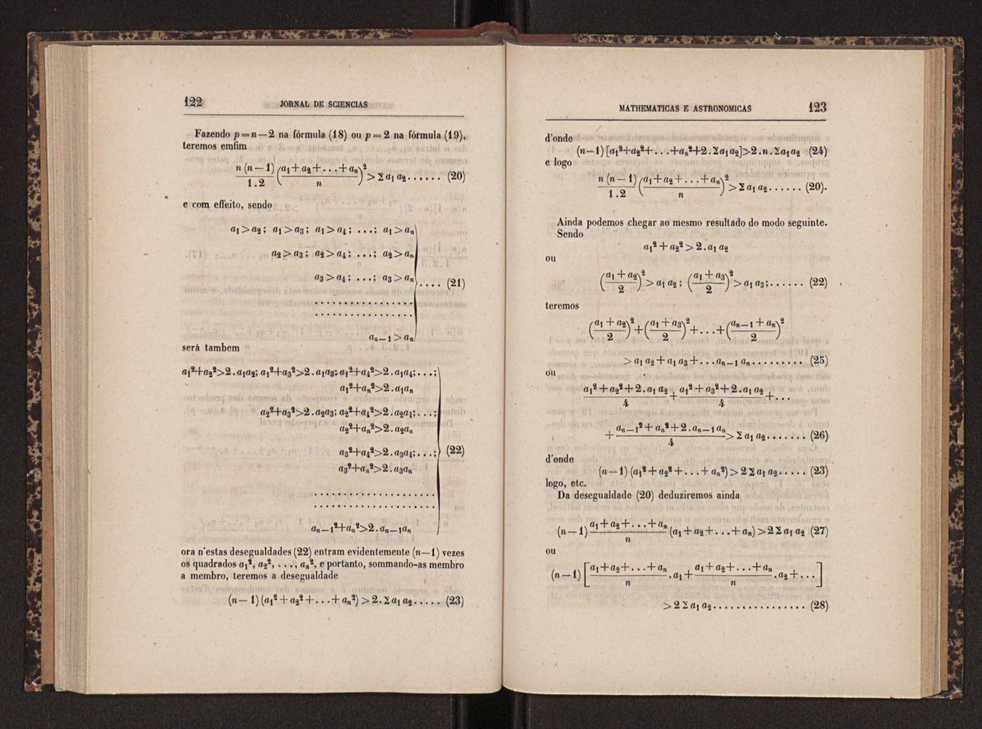 122 JORNAL DE SCIENCIAS
Fazendo p=n—2 na fórmula (18) ou p=2 na fórmula (19),
teremos emfim
n(n—1)/1.2 ((a₁+a₂+...+aₙ)/n)² > Σ a₁ a₂...... (20)
e com effeito, sendo
a₁>a₂; a₁>a₃; a₁>a₄; ...; a₁>aₙ
a₂>a₃; a₂>a₄; ...; a₂>aₙ
a₃>a₄; ...; a₃>aₙ .... (21)
.................
.................
aₙ₋₁>aₙ
será tambem
a₁²+a₂²>2.a₁a₂; a₁²+a₃²>2.a₁a₃; a₁²+a₄²>2.a₁a₄;...;
a₁²+aₙ²>2.a₁aₙ
a₂²+a₃²>2.a₂a₃; a₂²+a₄²>2.a₂a₄;...;
a₂²+aₙ²>2.a₂aₙ
a₃²+a₄²>2.a₃a₄;...; (22)
a₃²+aₙ²>2.a₃aₙ
.....................
.....................
aₙ₋₁²+aₙ²>2.aₙ₋₁aₙ
ora n'estas desegualdades (22) entram evidentemente (n—1) vezes
os quadrados a₁², a₂², ...., aₙ², e portanto, sommando-as membro
a membro, teremos a desegualdade
(n—1)(a₁²+a₂²+...+aₙ²)>2.Σ a₁ a₂..... (23)
MATHEMATICAS E ASTRONOMICAS 123
d'onde
(n—1)[a₁²+a₂²+...+aₙ²+2.Σa₁a₂]>2.n.Σa₁a₂ (24)
e logo
n(n—1)/1.2 ((a₁+a₂+...+aₙ)/n)² > Σ a₁ a₂...... (20).
Ainda podemos chegar ao mesmo resultado do modo seguinte.
Sendo
a₁²+a₂²>2.a₁ a₂
ou
((a₁+a₂)/2)² > a₁ a₂; ((a₁+a₃)/2)² > a₁ a₃;...... (22)
teremos
((a₁+a₂)/2)²+((a₁+a₃)/2)²+...+((aₙ₋₁+aₙ)/2)²
> a₁ a₂+a₁ a₃+...aₙ₋₁ aₙ......... (25)
ou
(a₁²+a₂²+2.a₁ a₂)/4+(a₁²+a₃²+2.a₁ a₂)/4+...
+(aₙ₋₁²+aₙ²+2.aₙ₋₁aₙ)/4 > Σ a₁ a₂....... (26)
d'onde
(n—1)(a₁²+a₂²+...+aₙ²)>2Σ a₁ a₂..... (23)
logo, etc.
Da desegualdade (20) deduziremos ainda
(n—1)(a₁+a₂+...+aₙ)/n (a₁+a₂+...+aₙ)>2Σ a₁ a₂ (27)
ou
(n—1)[(a₁+a₂+...+aₙ)/n.a₁+(a₁+a₂+...+aₙ)/n.a₂+...]
>2Σ a₁ a₂................ (28)